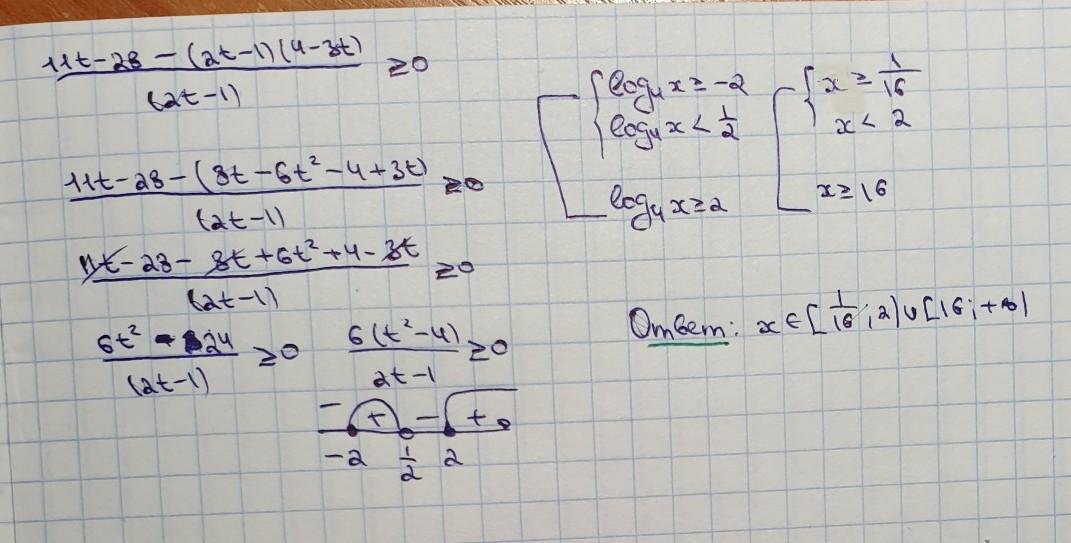 11t-28-(2t-1)(4-3t)
(2t-1)
≥0
11t-28-(8t-6t²-4+3t)
(2t-1)
≥0
11t-28-8t+6t²+4-3t
(2t-1)
≥0
6t²-24
(2t-1)
≥0
6(t²-4)
2t-1
≥0
- + - +
-2 1/2 2
log₄x≥-2
log₄x<1/2
log₄x≥2
x≥1/16
x<2
x≥16
Ответ: x∈[1/16;2)∪[16;+∞)